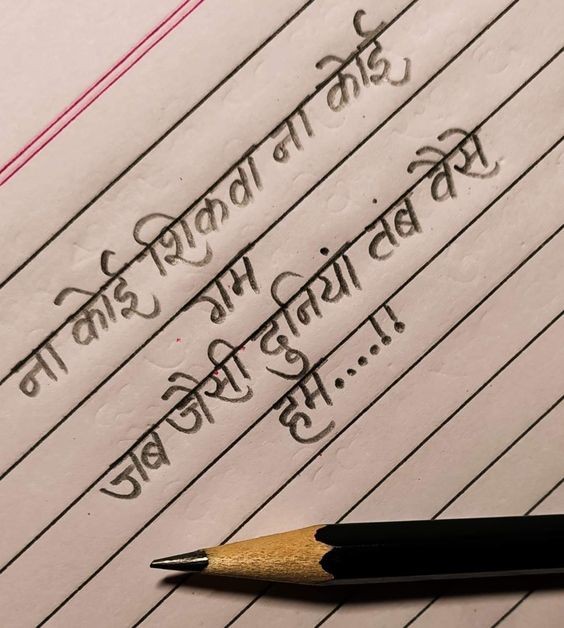 ना कोई शिकवा ना कोई
गम
जब जैसी दुनियां तब वैसे
हम....!!